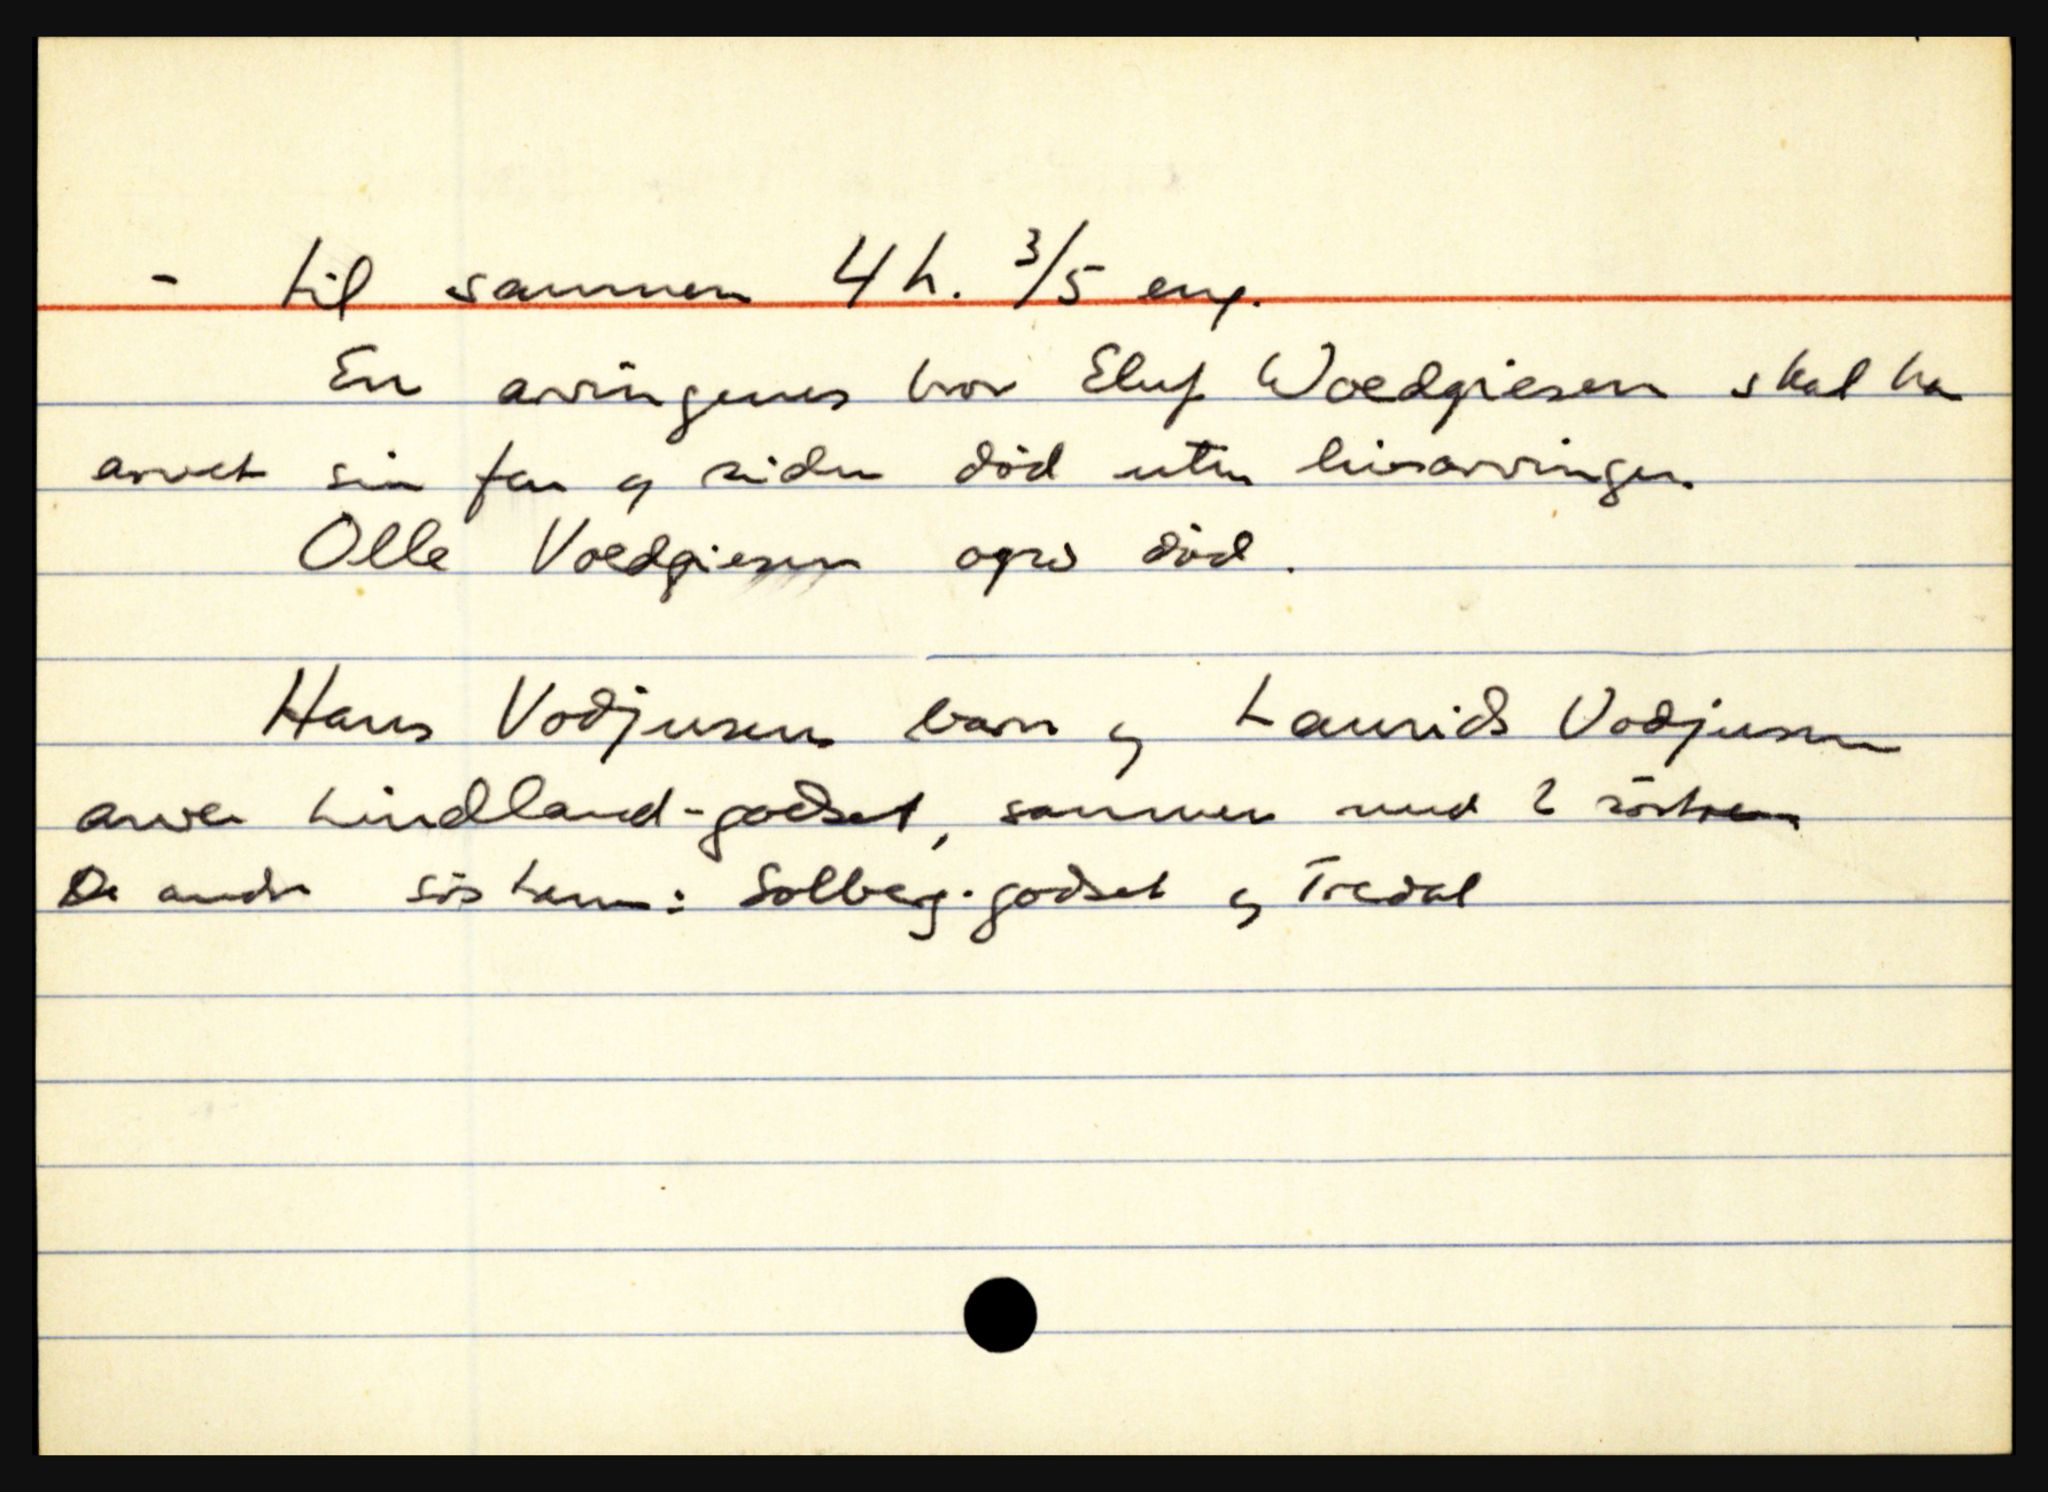 - til sammen 4 h. 3/5 eng.
En arvingenes bror Eluf Woedgiesen skal ha
arvet sin far og siden död uten livsarvinger.
Olle Voedgiesen også död.
Hans Vodjusen barn og Laurids Vodjusen
arver Lindland-godset, sammen med 2 söstre
De andre söstrene: Solberg-godset og Tredal